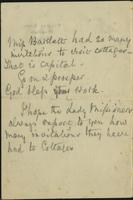 Miss Bartlett had so many
invitations to visit cottages.
That is capital.
Go on & prosper.
God Help your Work.
I hope the Lady Missioners
always expose to you how
many invitations they have
had to Cottages